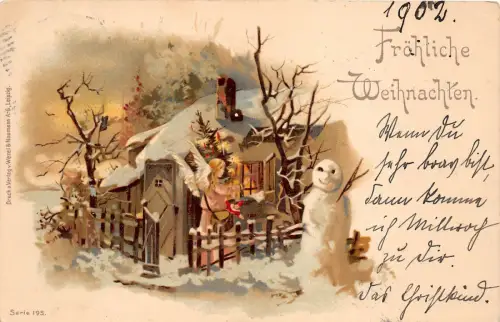 1902.
Fröhliche
Weihnachten.
Wenn Du
sehr brav bist,
dann komme
ich Mittwoch
zu Dir.
Das Christkind.
Druck u. Verlag v. Wezel & Naumann A.-G., Leipzig.
Serie 192.